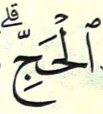 ٱلْحَجِّۗ